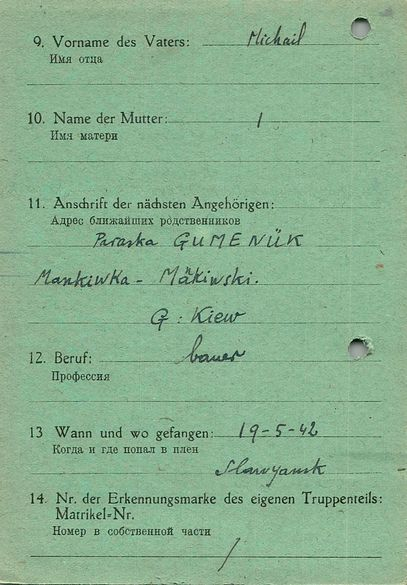 9. Vorname des Vaters: Michail
Имя отца
10. Name der Mutter: /
Имя матери
11. Anschrift der nächsten Angehörigen:
Адрес ближайших родственников
Paraska GUMENÜK
Mankiwka - Mäkiwski.
G: Kiew
12. Beruf: bauer
Профессия
13 Wann und wo gefangen: 19-5-42
Когда и где попал в плен
Slawyansk
14. Nr. der Erkennungsmarke des eigenen Truppenteils:
Matrikel-Nr.
Номер в собственной части
/